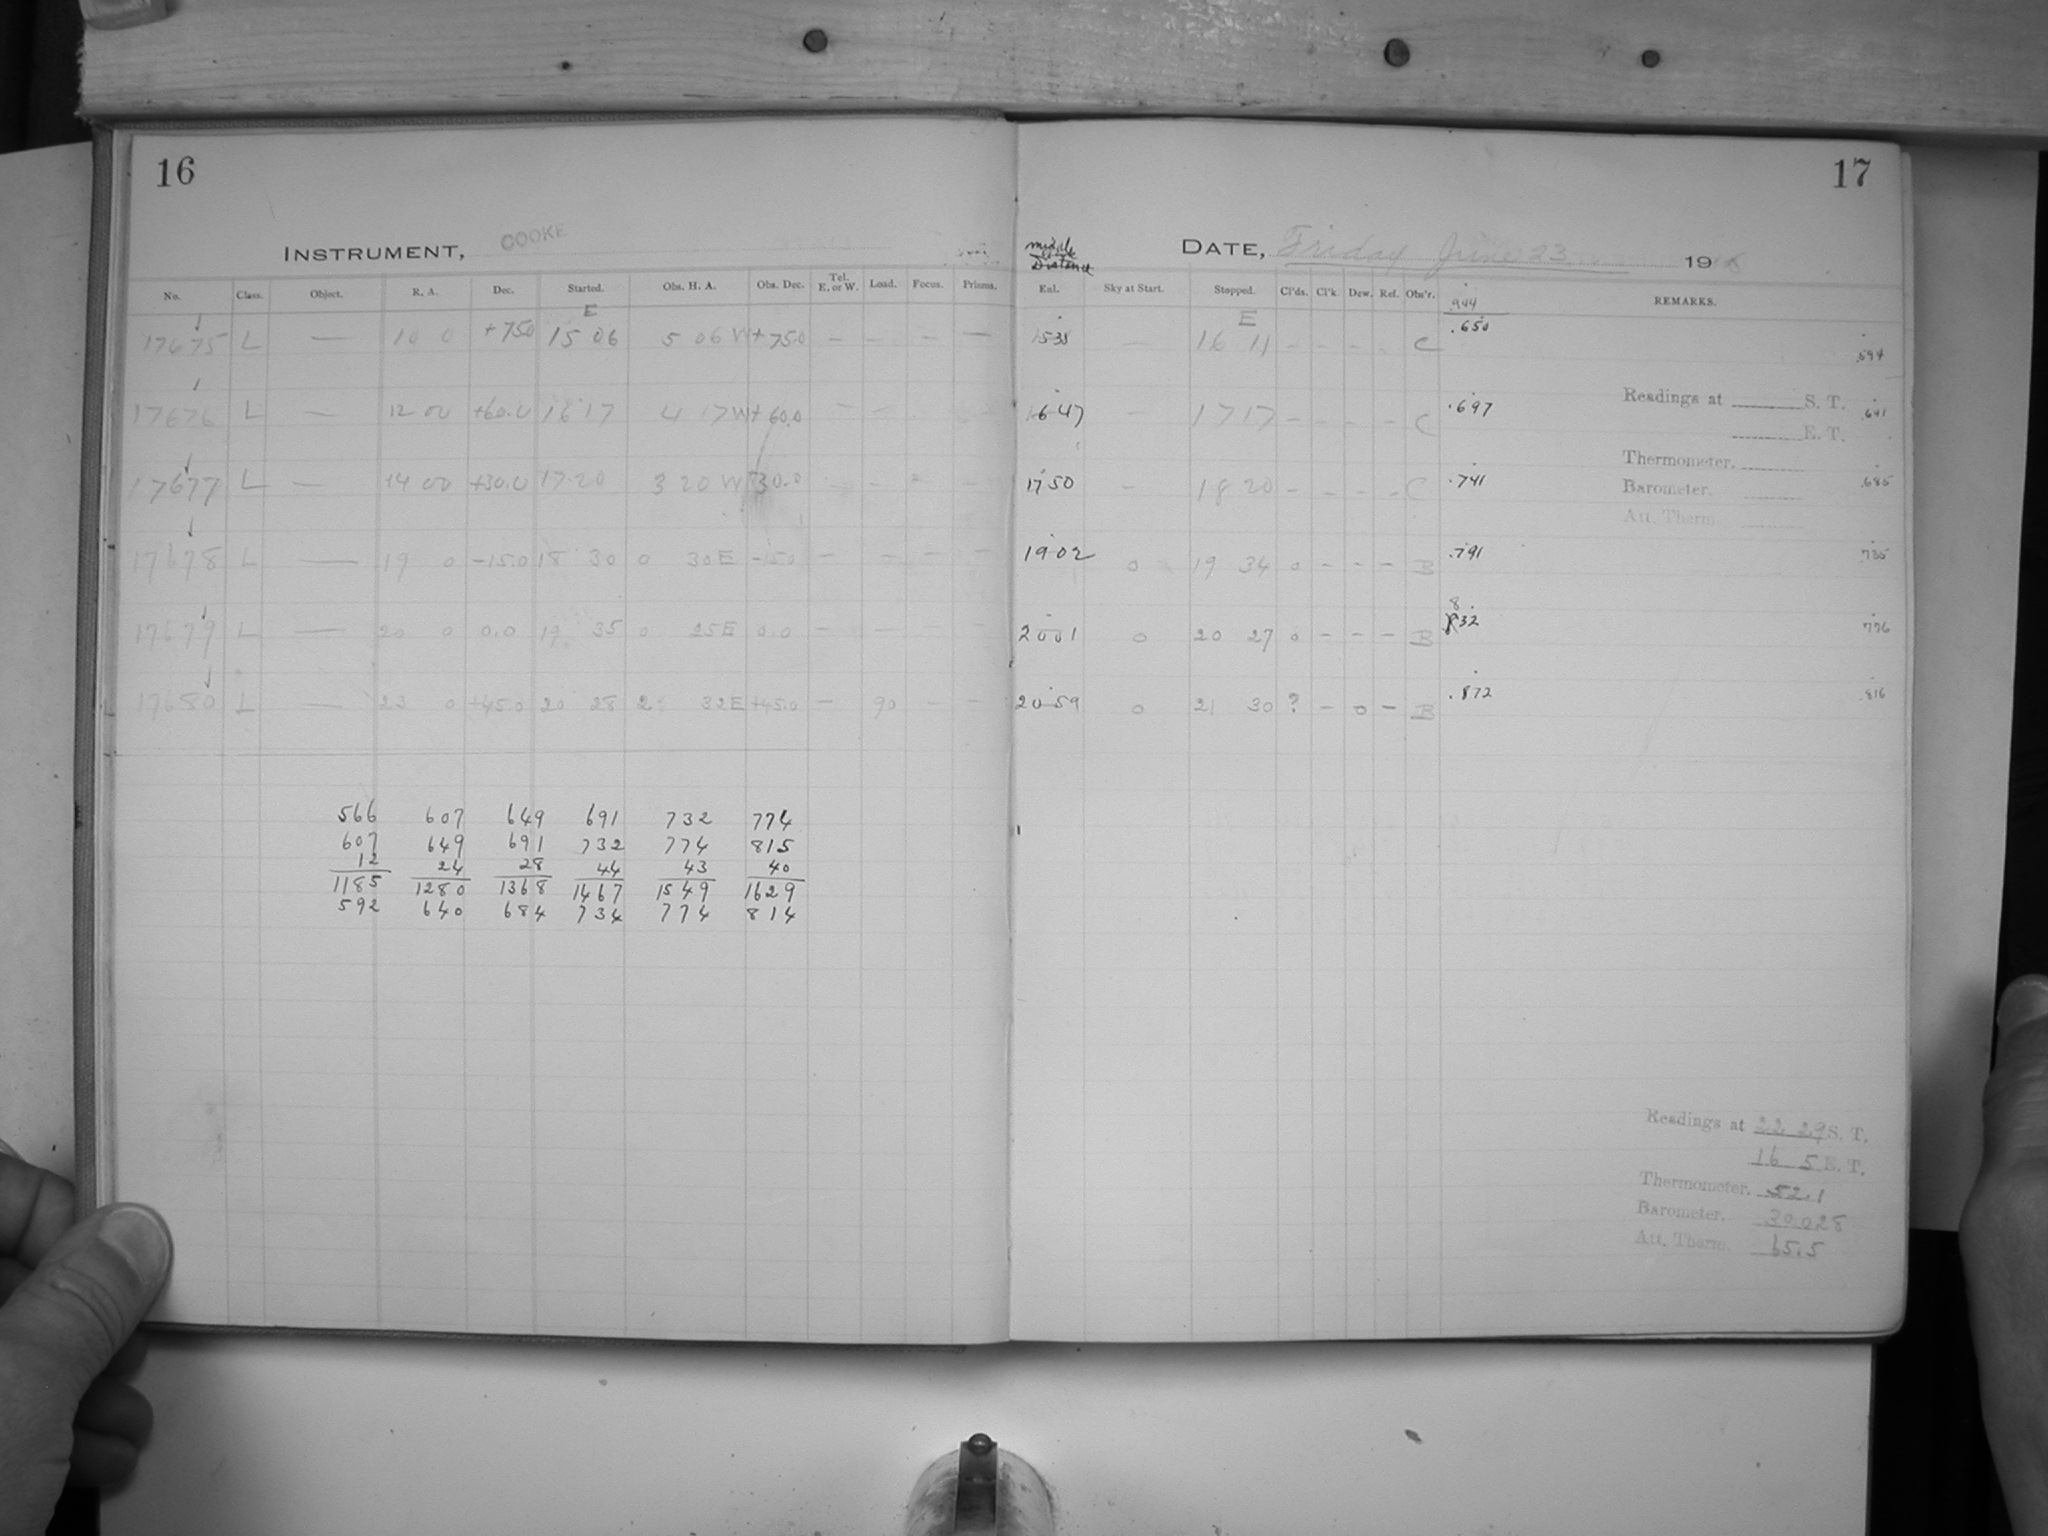 16
INSTRUMENT, COOKE
No. Class. Object. R. A. Dec. Started. Obs. H. A. Obs. Dec. Tel. E. or W. Load. Focus. Prisms.
E
17675 L — 10 0 +75.0 15 06 5 06 W +75.0 — — — —
17676 L — 12 00 +60.0 16 17 4 17 W +60.0 — — —
17677 L — 14 00 +30.0 17 20 3 20 W +30.0 — — — —
17678 L — 19 0 -15.0 18 30 0 30 E -15.0 — — — —
17679 L — 20 0 0.0 19 35 0 25 E 0.0 — — — —
17680 L — 23 0 +45.0 20 28 2 32 E +45.0 — 90 — —
566 607 649 691 732 774
607 649 691 732 774 815
12 24 28 44 43 40
1185 1280 1368 1467 1549 1629
592 640 684 734 774 814
17
DATE, Friday June 23 19
Distance
Enl. Sky at Start. Stopped. Cl'ds. Cl'k. Dew. Ref. Obs'r. .944 REMARKS.
E
1538 — 16 11 - - - - C .650 .594
1647 - 17 17 - - - - C .697 .641
1750 - 18 20 - - - - C .741 .685
1902 0 19 34 0 - - - B .791 .735
2001 0 20 27 0 - - - B .832 .776
2059 0 21 30 ? - 0 - B .872 .816
Readings at S. T.
E. T.
Thermometer.
Barometer.
Att. Therm.
Readings at 22 29 S. T.
16 5 E. T.
Thermometer. 52.1
Barometer. 30.028
Att. Therm. 65.5